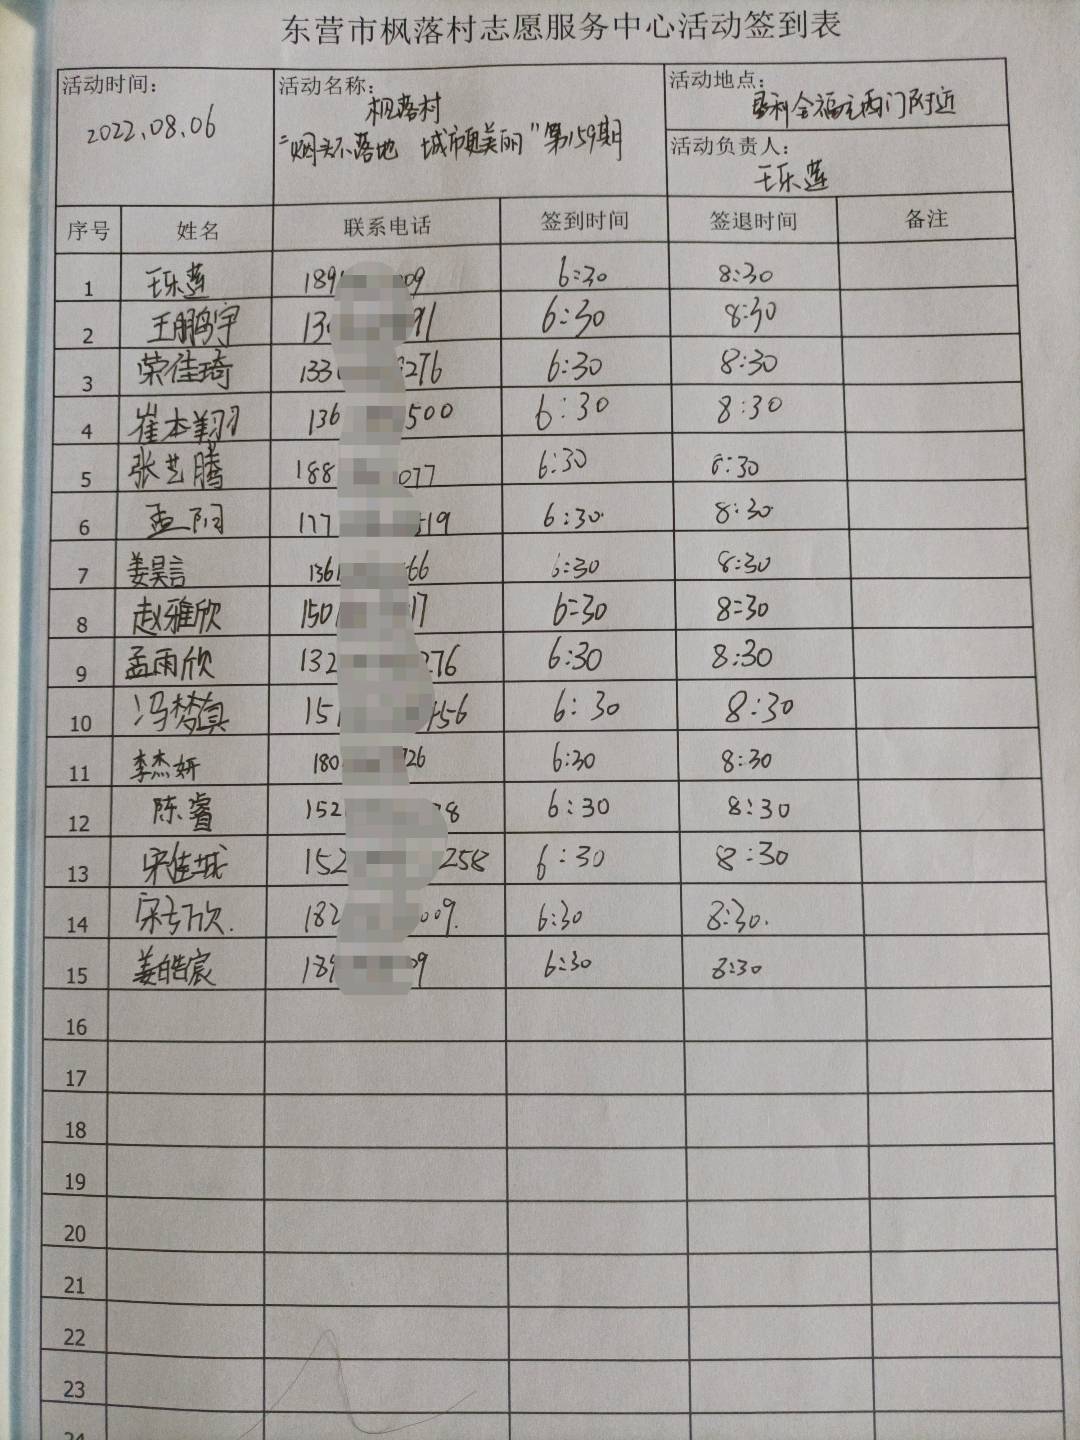 东营市枫落村志愿服务中心活动签到表
活动时间： 活动名称： 活动地点：
2022.08.06 枫落村 垦利全福元西门附近
"烟头不落地 城市更美丽"第159期 活动负责人：
王乐莲
序号 姓名 联系电话 签到时间 签退时间 备注
1 王乐莲 189 09 6:30 8:30
2 王鹏宇 13 91 6:30 8:30
3 荣佳琦 133 276 6:30 8:30
4 崔本翔 136 500 6:30 8:30
5 张艺腾 188 077 6:30 8:30
6 孟阳 177 519 6:30 8:30
7 姜昊言 136 66 6:30 8:30
8 赵雅欣 150 17 6:30 8:30
9 孟雨欣 132 276 6:30 8:30
10 冯梦真 15 456 6:30 8:30
11 李杰妍 180 726 6:30 8:30
12 陈睿 152 8 6:30 8:30
13 宋佳城 152 258 6:30 8:30
14 宋 欣. 182 009. 6:30 8:30.
15 姜皓宸 189 09 6:30 8:30
16
17
18
19
20
21
22
23
24